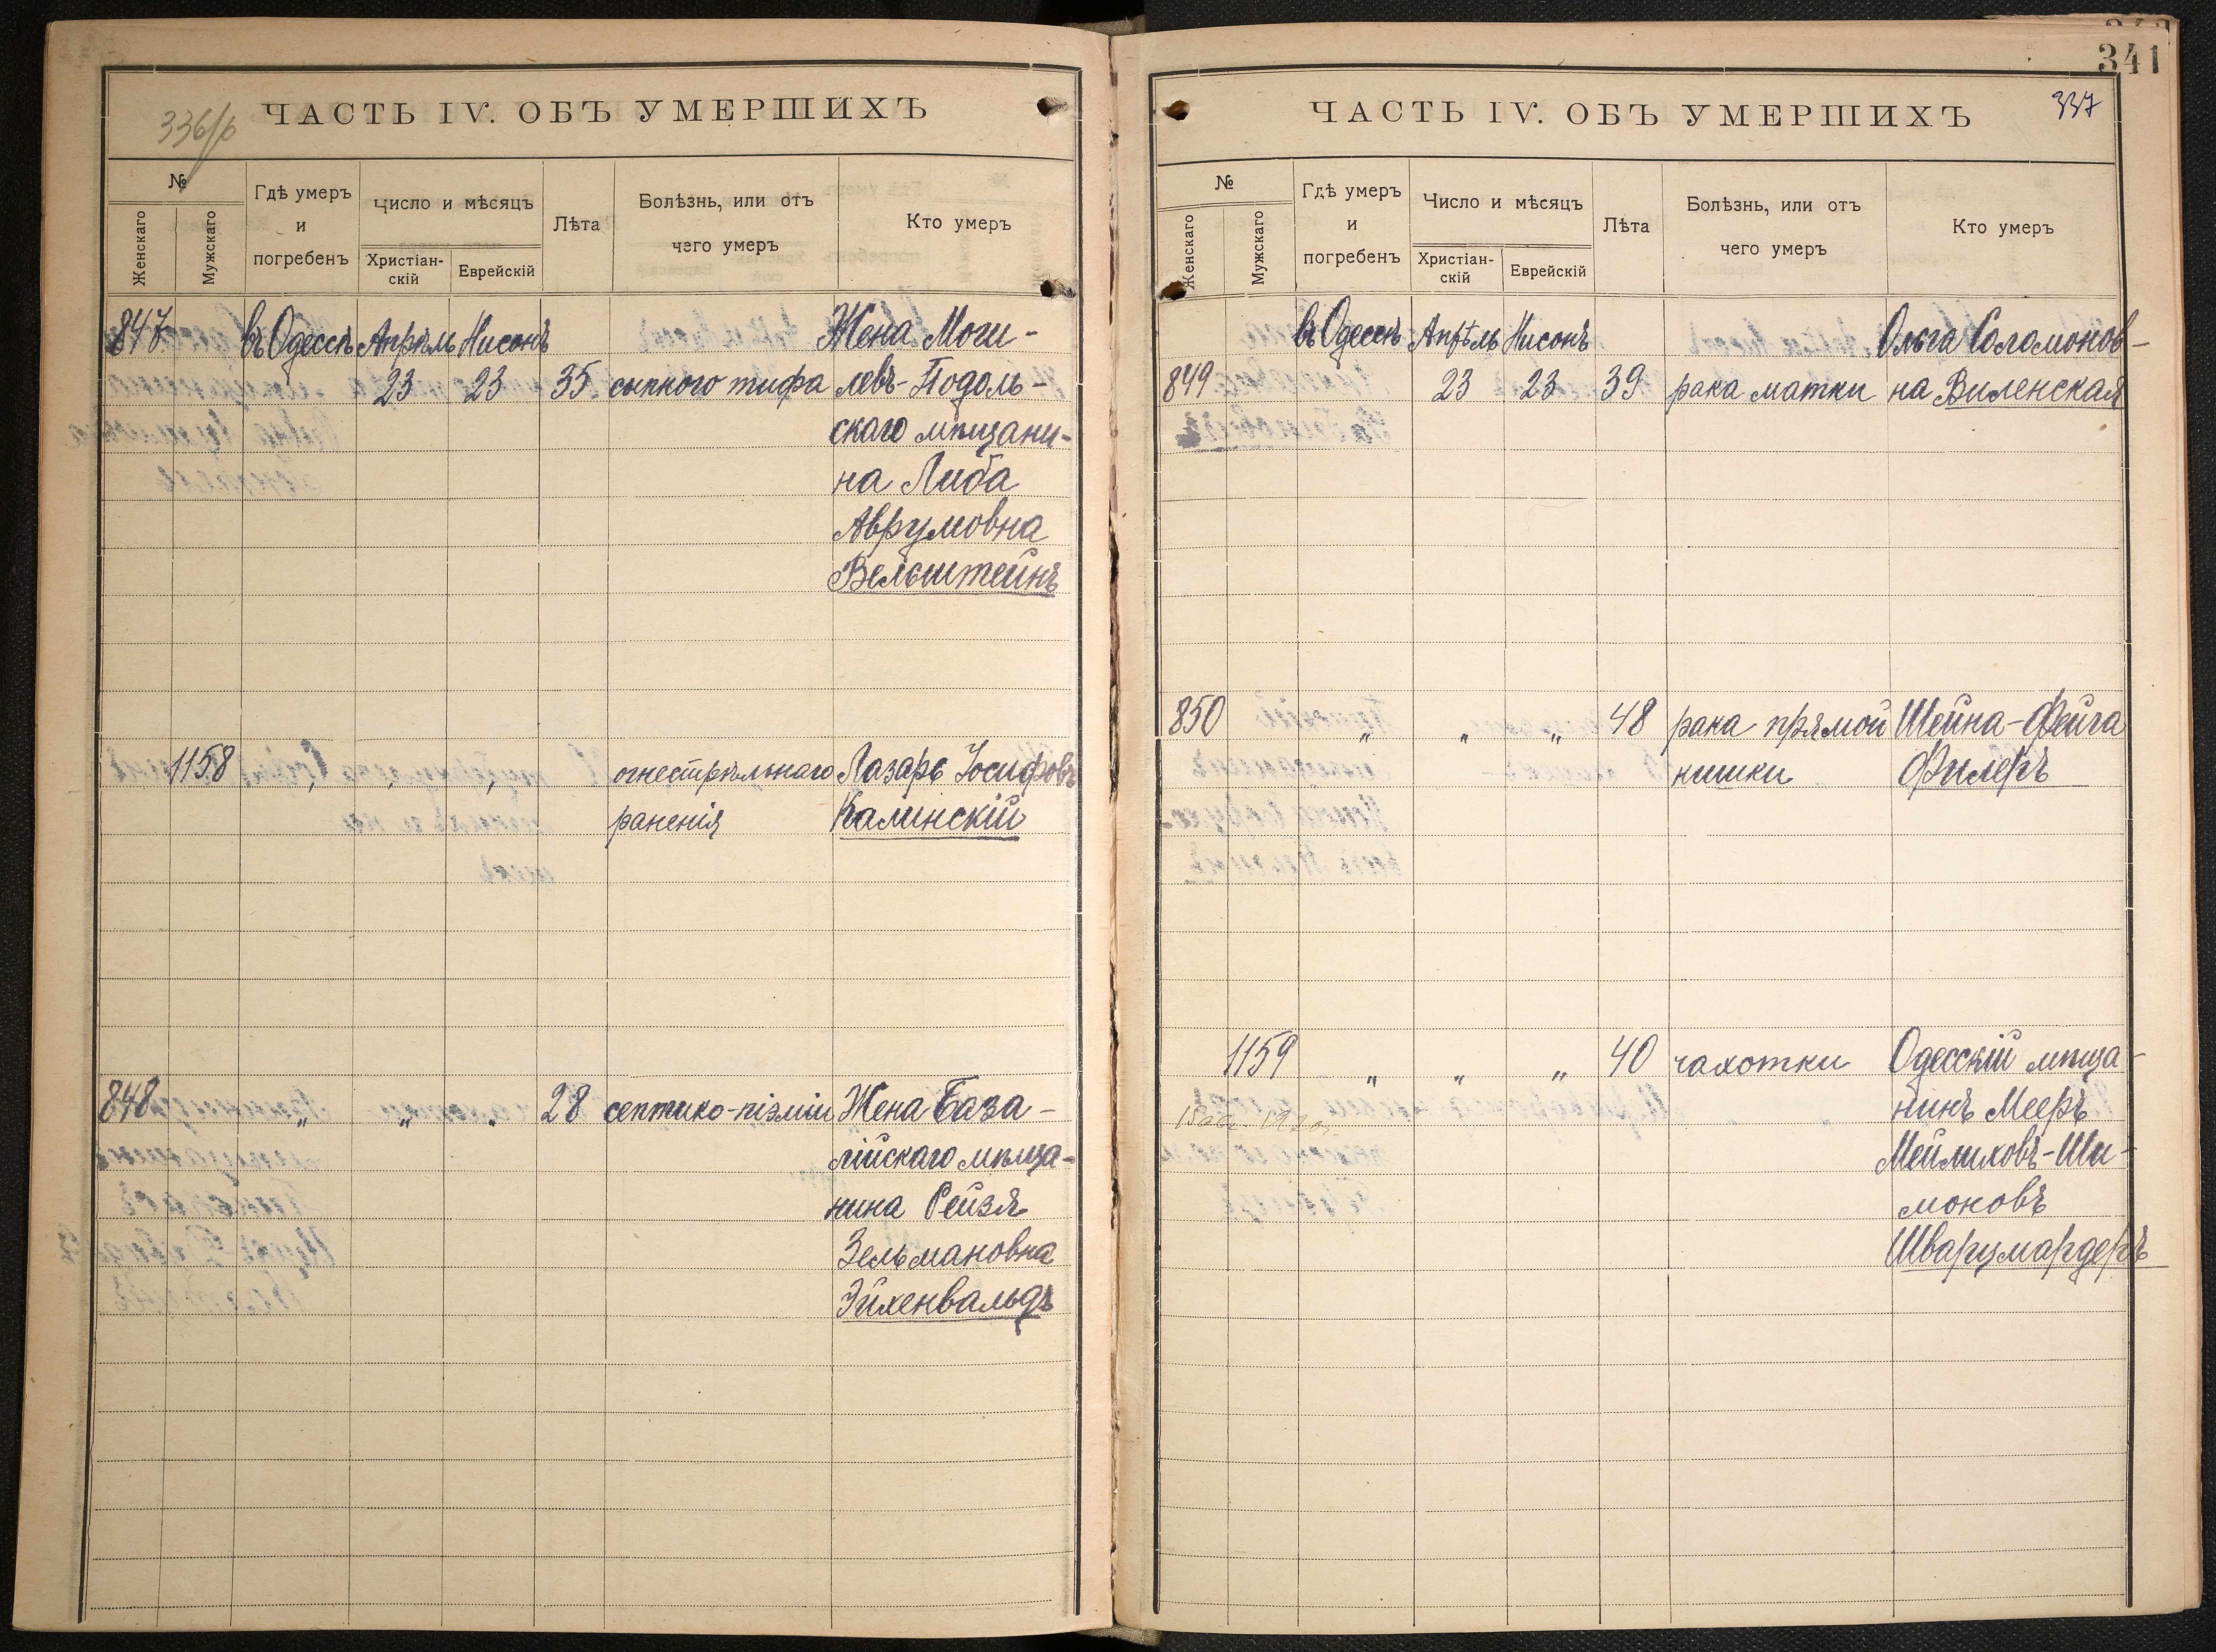 336/б
ЧАСТЬ IV. ОБЪ УМЕРШИХЪ
№
Женскаго
Мужскаго
Гдѣ умеръ
и
погребенъ
Число и мѣсяцъ
Христіан-
скій
Еврейскій
Лѣта
Болѣзнь, или отъ
чего умеръ
Кто умеръ
847 въ Одессѣ Апрѣль Нисонъ Жена Моги-
23 23 35 сыпного тифа левъ-Подоль-
скаго мѣщани-
на Либа
Аврумовна
Вельштейнъ
1158 " " " огнестрѣльнаго Лазарь Іосифовъ
раненія Калинскій
848 " " " 28 септико-піэміи Жена База-
лійскаго мѣща-
нина Рейзя
Зельмановна
Эйхенвальдъ
341
ЧАСТЬ IV. ОБЪ УМЕРШИХЪ
337
№
Женскаго
Мужскаго
Гдѣ умеръ
и
погребенъ
Число и мѣсяцъ
Христіан-
скій
Еврейскій
Лѣта
Болѣзнь, или отъ
чего умеръ
Кто умеръ
въ Одессѣ Апрѣль Нисонъ Ольга Соломонов-
849 23 23 39 рака матки на Виленская
850 " " " 48 рака прямой Шейна-Фейга
кишки Филеръ
1159 " " " 40 чахотки Одесскій мѣща-
нинъ Мееръ
Мейлиховъ-Ши-
моновъ
Шварцмардеръ